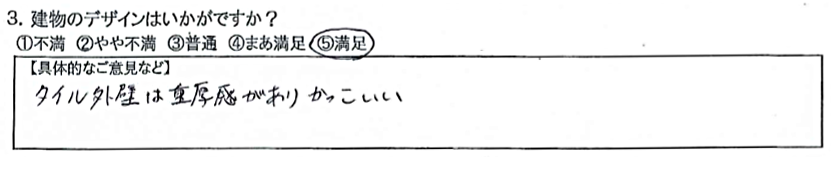 3. 建物のデザインはいかがですか？
①不満 ②やや不満 ③普通 ④まあ満足 ⑤満足
【具体的なご意見など】
タイル外壁は重厚感がありかっこいい